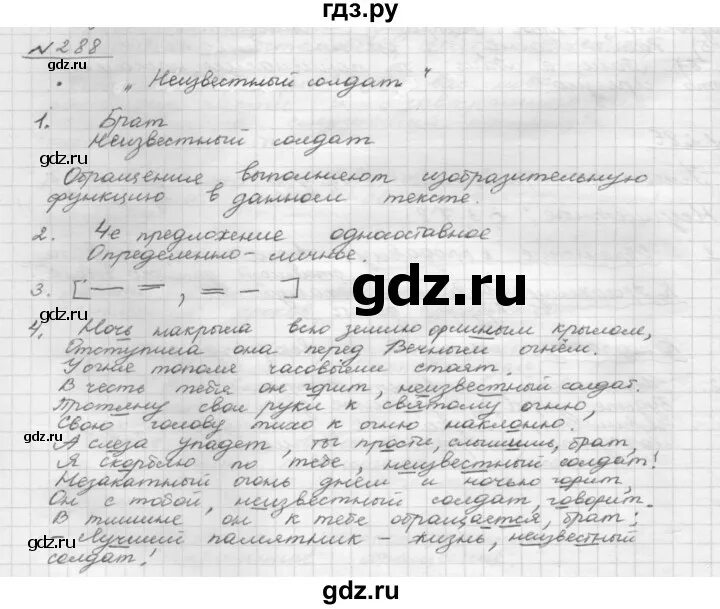 гдз.ру
№ 288
„ Неизвестный солдат "
1. Брат
Неизвестный солдат
Обращения выполняют изобразительную
функцию в данном тексте.
2. 4е предложение односоставное
Определенно-личное.
3. [— =, = —]
4. Ночь накрыла всю землю орлиным крылом,
Отступила она перед Вечным огнём.
У огня тополя часовыми стоят.
В честь тебя он горит, неизвестный солдат.
Протяну свои руки к святому огню,
Свою голову тихо к огню наклоню.
А слеза упадет, ты прости, слышишь, брат,
Я скорблю по тебе, неизвестный солдат!
Незакатный огонь днём и ночью горит,
Он с тобой, неизвестный солдат, говорит.
В тишине он к тебе обращается, брат:
— Лучший памятник - жизнь, неизвестный
солдат!
gdz.ru
gdz.ru
gdz.ru
gdz.ru
gdz.ru
gdz.ru
gdz.ru
gdz.ru
gdz.ru
gdz.ru
gdz.ru